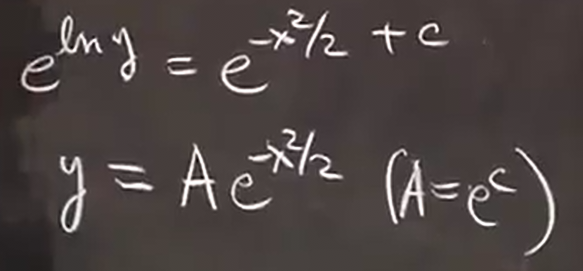 e^{ln y} = e^{-x²/2 + c}
y = Ae^{-x²/2} (A=e^c)